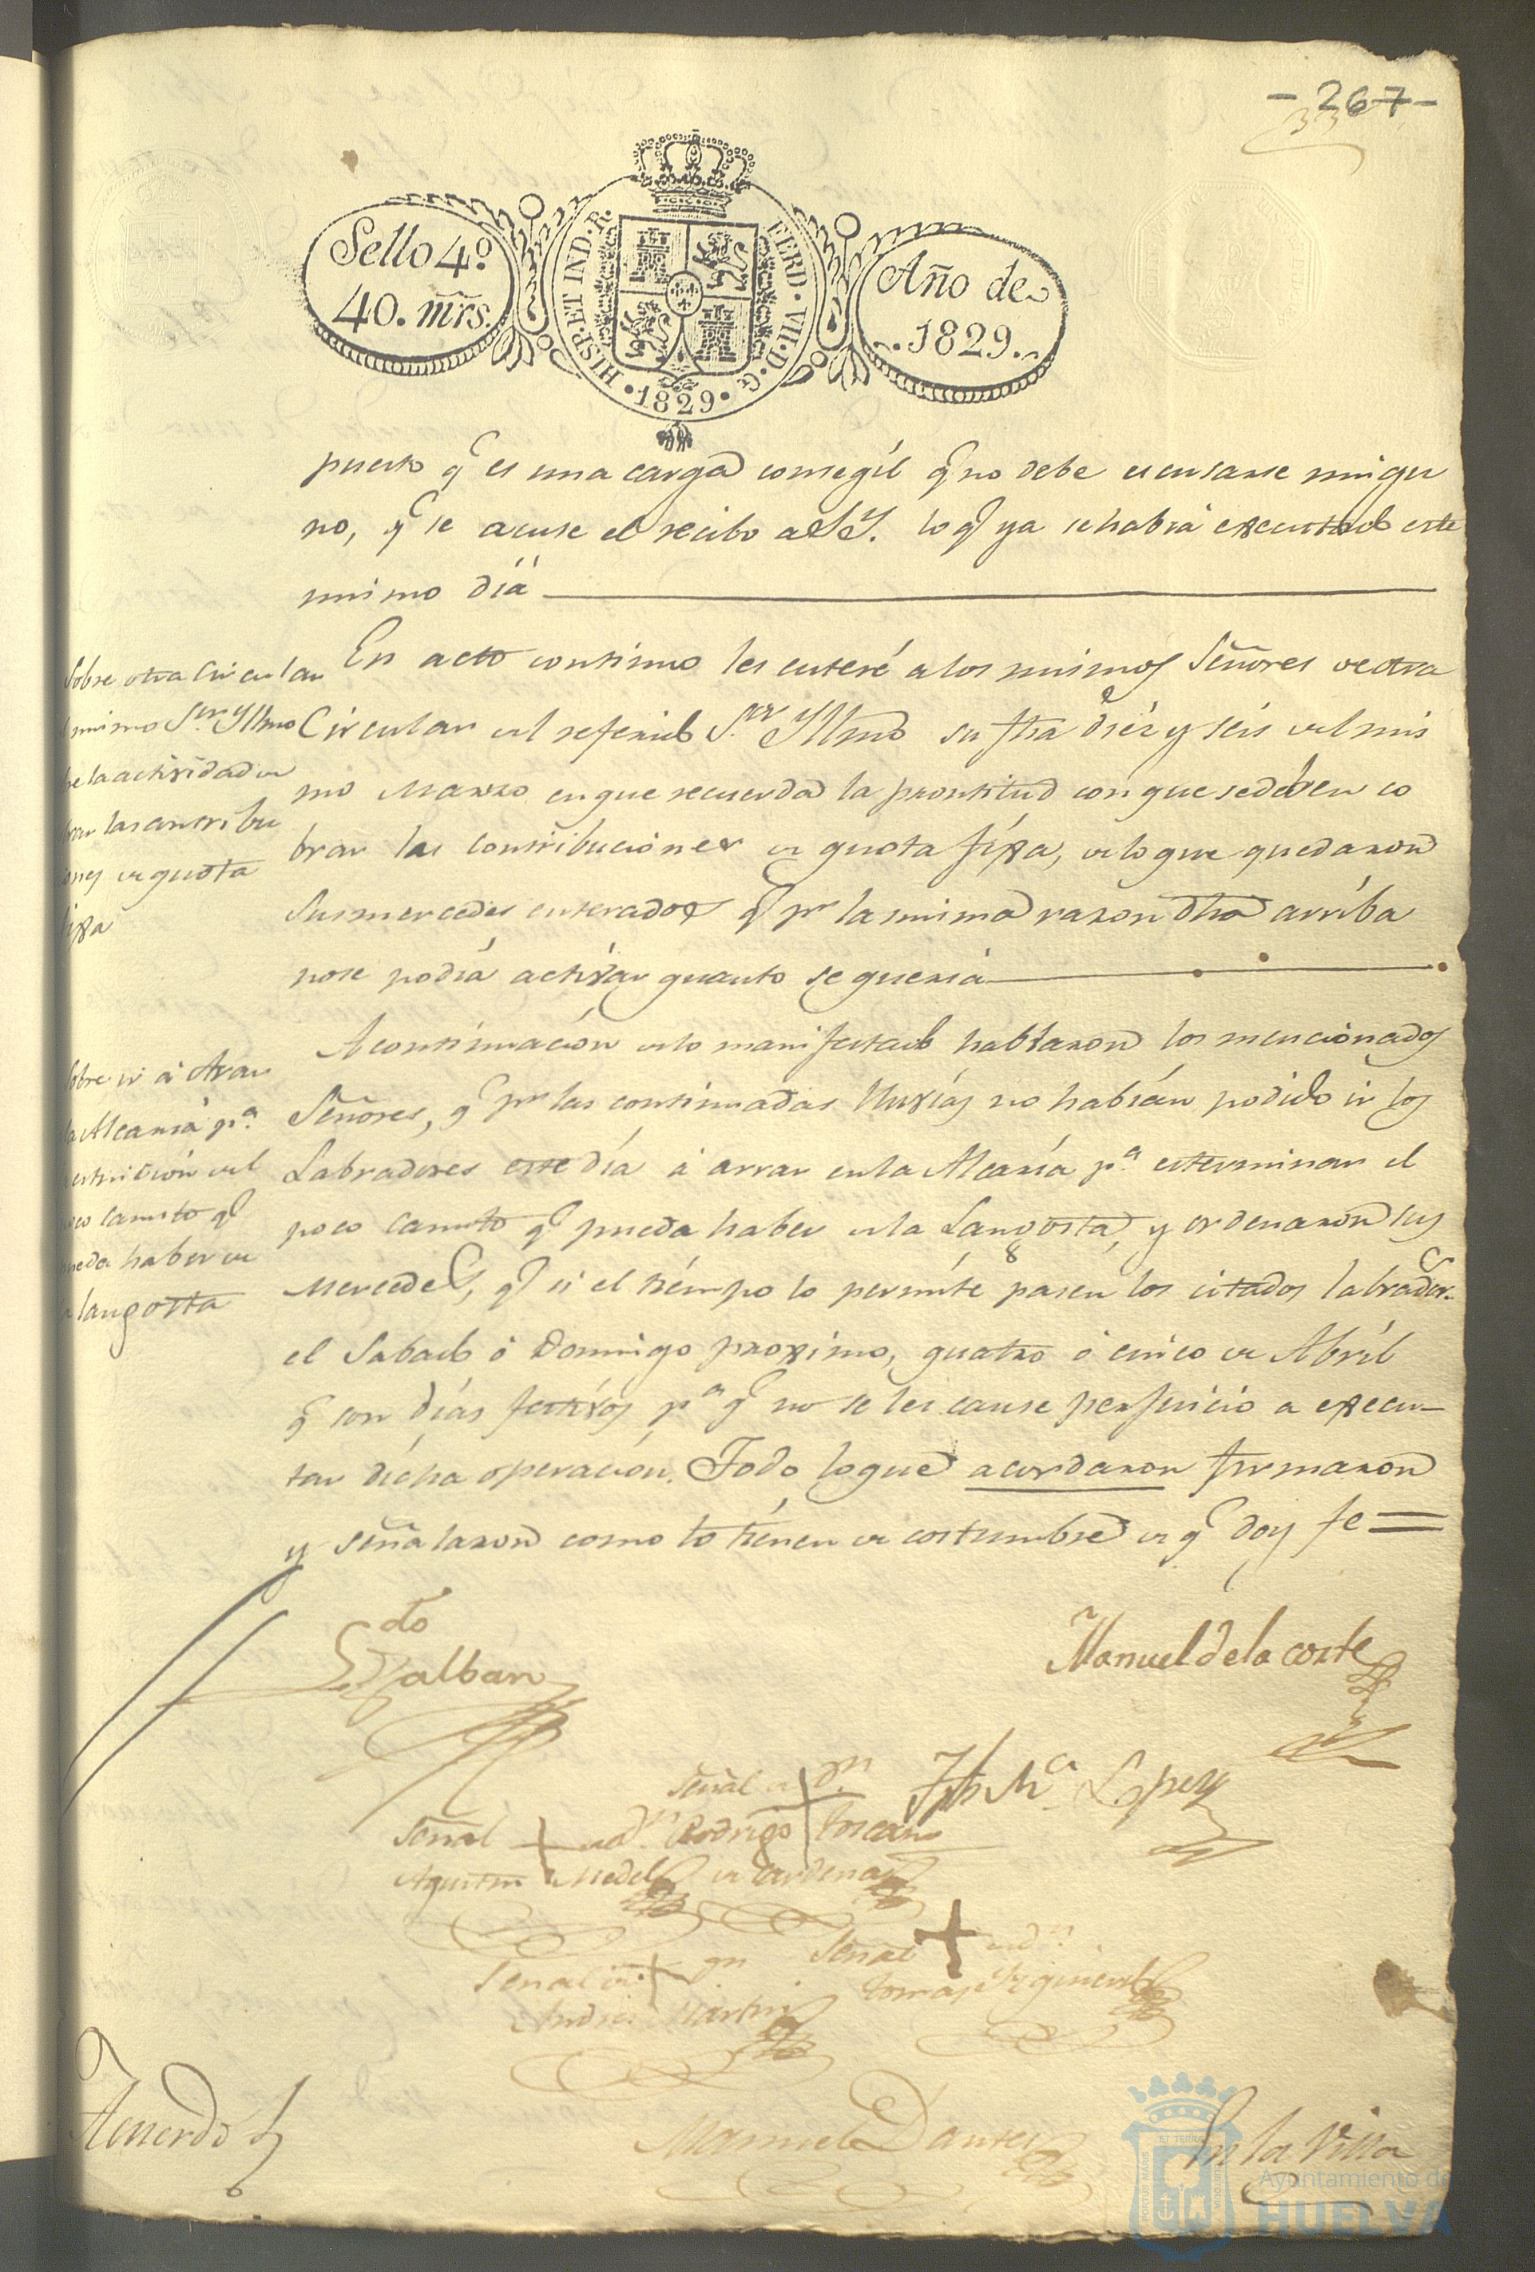 - 267 -
33
Sello 4º
40. mrs.
HISP. ET IND. R.
FERD. VII. D. G.
1829
Año de
1829.
puesto q.e es una carga consegil q.e no debe escusarse ningu
no, q.e se acuse el recibo a S.Y. lo q.e ya se habia executado este
mismo dia
Sobre otra Circular
mismo S.or Yllmo
la actividad en
las contribu
ones de quota
fixa
En acto continuo les enteré a los mismos Señores de otra
Circular del referido S.or Yllmo su fha diez y seis del mis
mo Marzo en que recuerda la prontitud con que se deben co
brar las Contribuciones de quota fixa, de lo que quedaron
Sus mercedes enterados q.e p.r la misma razon dha arriba
no se podia activar quanto se queria
Sobre ir á Arar
la Alcaria p.a
destruicion del
poco canuto q.e
pueda haber de
la langosta
A continuacion de lo manifestado hablaron los mencionados
Señores, q.e p.r las continuadas lluvias no habian podido ir los
Labradores este dia á arrar en la Alcaria p.a exterminar el
poco canuto q.e pueda haber de la Langosta, y ordenaron sus
Mercedes, q.e si el tiempo lo permite pasen los citados labrador.es
el Sabado ó Domingo proximo, quatro ó cinco de Abril
q.e son dias festivos p.a q.e no se les cause perjuicio a execu-
tar dicha operacion. Todo lo que acordaron firmaron
y señalaron como lo tienen de costumbre de q.e doy fe =
Ldo
Galban
Manuel de la corte
Señal de D.n
Rodrigo Toscano
de Cardenas
Jph M.a Lopez
Señal de D.n
Agustin Medel
Señal de D.n
Andres Martin
Señal de D.n
Tomas
Manuel Dantes
Acuerdo
En la Villa
Ayuntamiento de
HUELVA